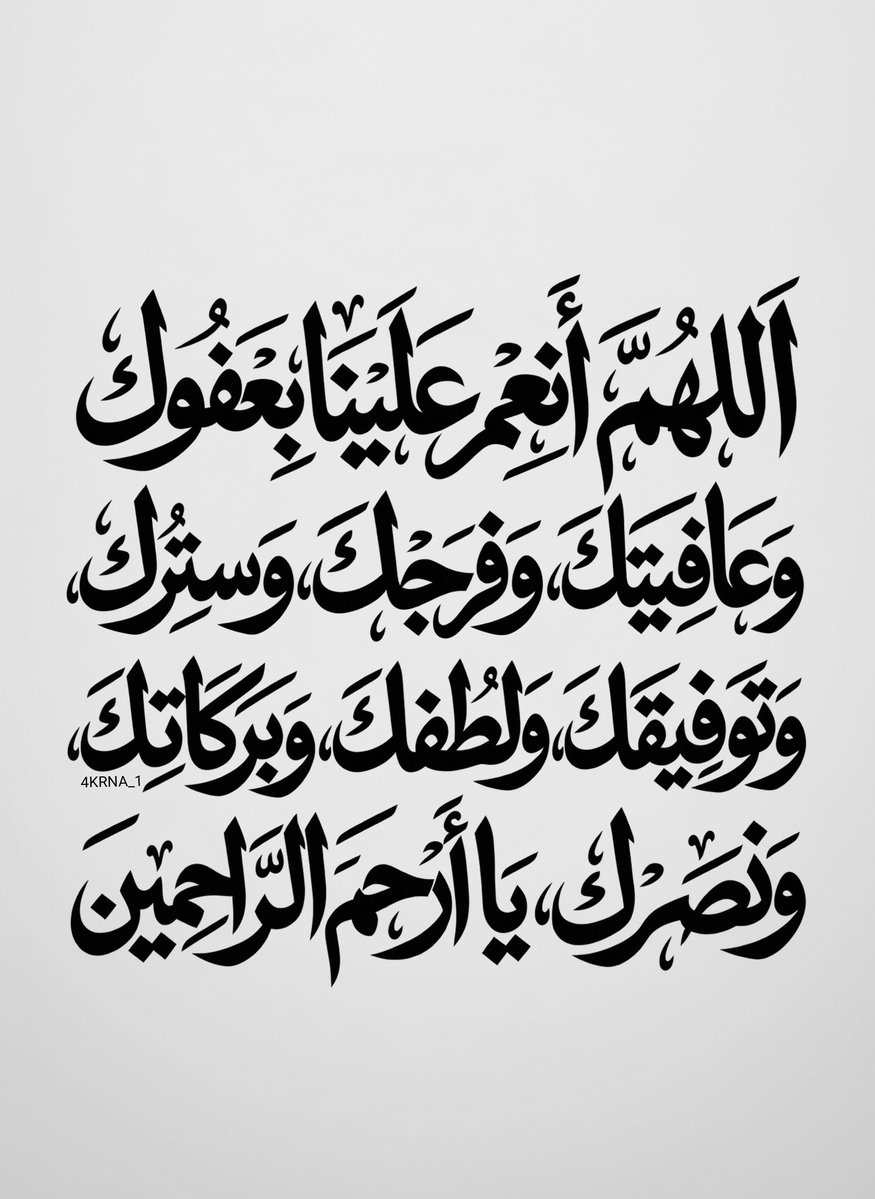 اَللهُمَّ أَنعِمْ عَلَيْنَا بِعَفْوُك
وَعَافِيَتِكَ، وَفَرَجْكَ، وَسِتِرُك،
وَتَوَفِيقَكَ، وَلُطفكَ، وَبَرَكَاتِكَ،
4KRNA_1
وَنصَرْك، يَا أَرْحمَ الرَّاحِمِينَ